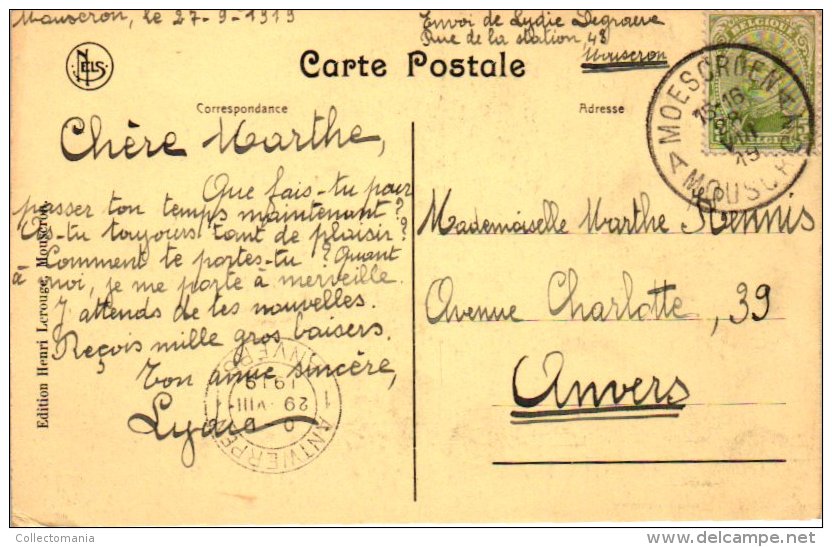 Mouscron, le 27-9-1919
Envoi de Lydie Degraeve
Rue de la station, 48
Mouscron
NELS
Carte Postale
Correspondance
Adresse
Chère Marthe,
Que fais-tu pour
passer ton temps maintenant?
As-tu toujours tant de plaisir?
Comment te portes-tu? Quant
à moi, je me porte à merveille.
J'attends de tes nouvelles.
Reçois mille gros baisers.
Ton amie sincère,
Lydie
Mademoiselle Marthe Rennis
Avenue Charlotte, 39
Anvers
Edition Henri Lerouge, Mouscron
BELGIQUE
BELGIË
MOESCROEN
15-16
28
19
MOUSCRON
ANTWERPEN
29 VIII
1919
ANVERS
Collectomania
delcampe.net